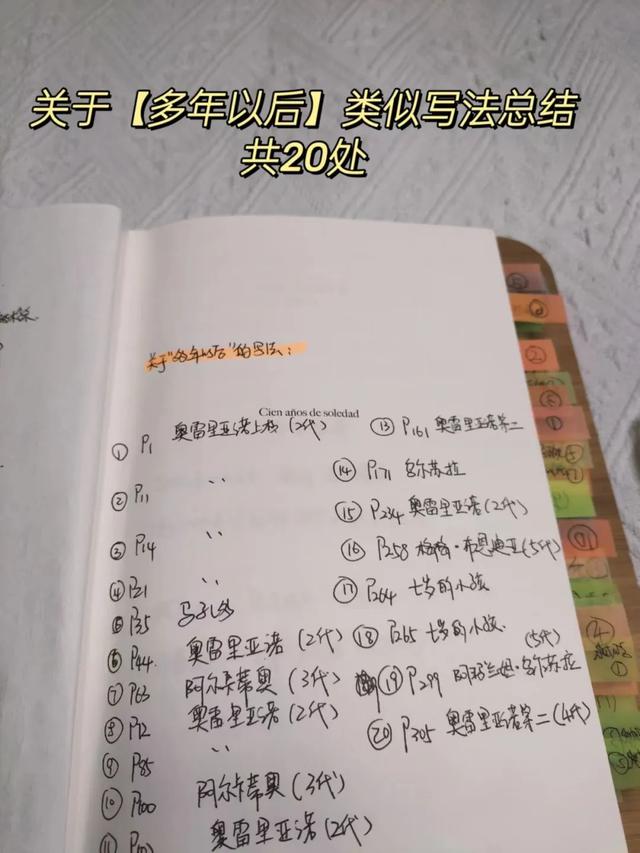 关于【多年以后】类似写法总结
共20处
关于"多年以后"的写法：
Cien años de soledad
① P1 奥雷里亚诺上校（2代）
② P11 〃
③ P14 〃
④ P21 〃
⑤ P35
⑥ P44 奥雷里亚诺（2代）
⑦ P63 阿尔卡蒂奥（3代）
⑧ P72 奥雷里亚诺（2代）
⑨ P85 〃
⑩ P100 阿尔卡蒂奥（3代）
⑪ 奥雷里亚诺（2代）
⑬ P161 奥雷里亚诺第二
⑭ P171 乌尔苏拉
⑮ P234 奥雷里亚诺（2代）
⑯ P258 梅梅·布恩迪亚（5代）
⑰ P264 七岁的小孩
⑱ P265 七岁的小孩
⑲ P299 阿玛兰妲·乌尔苏拉（5代）
⑳ P305 奥雷里亚诺第二（4代）